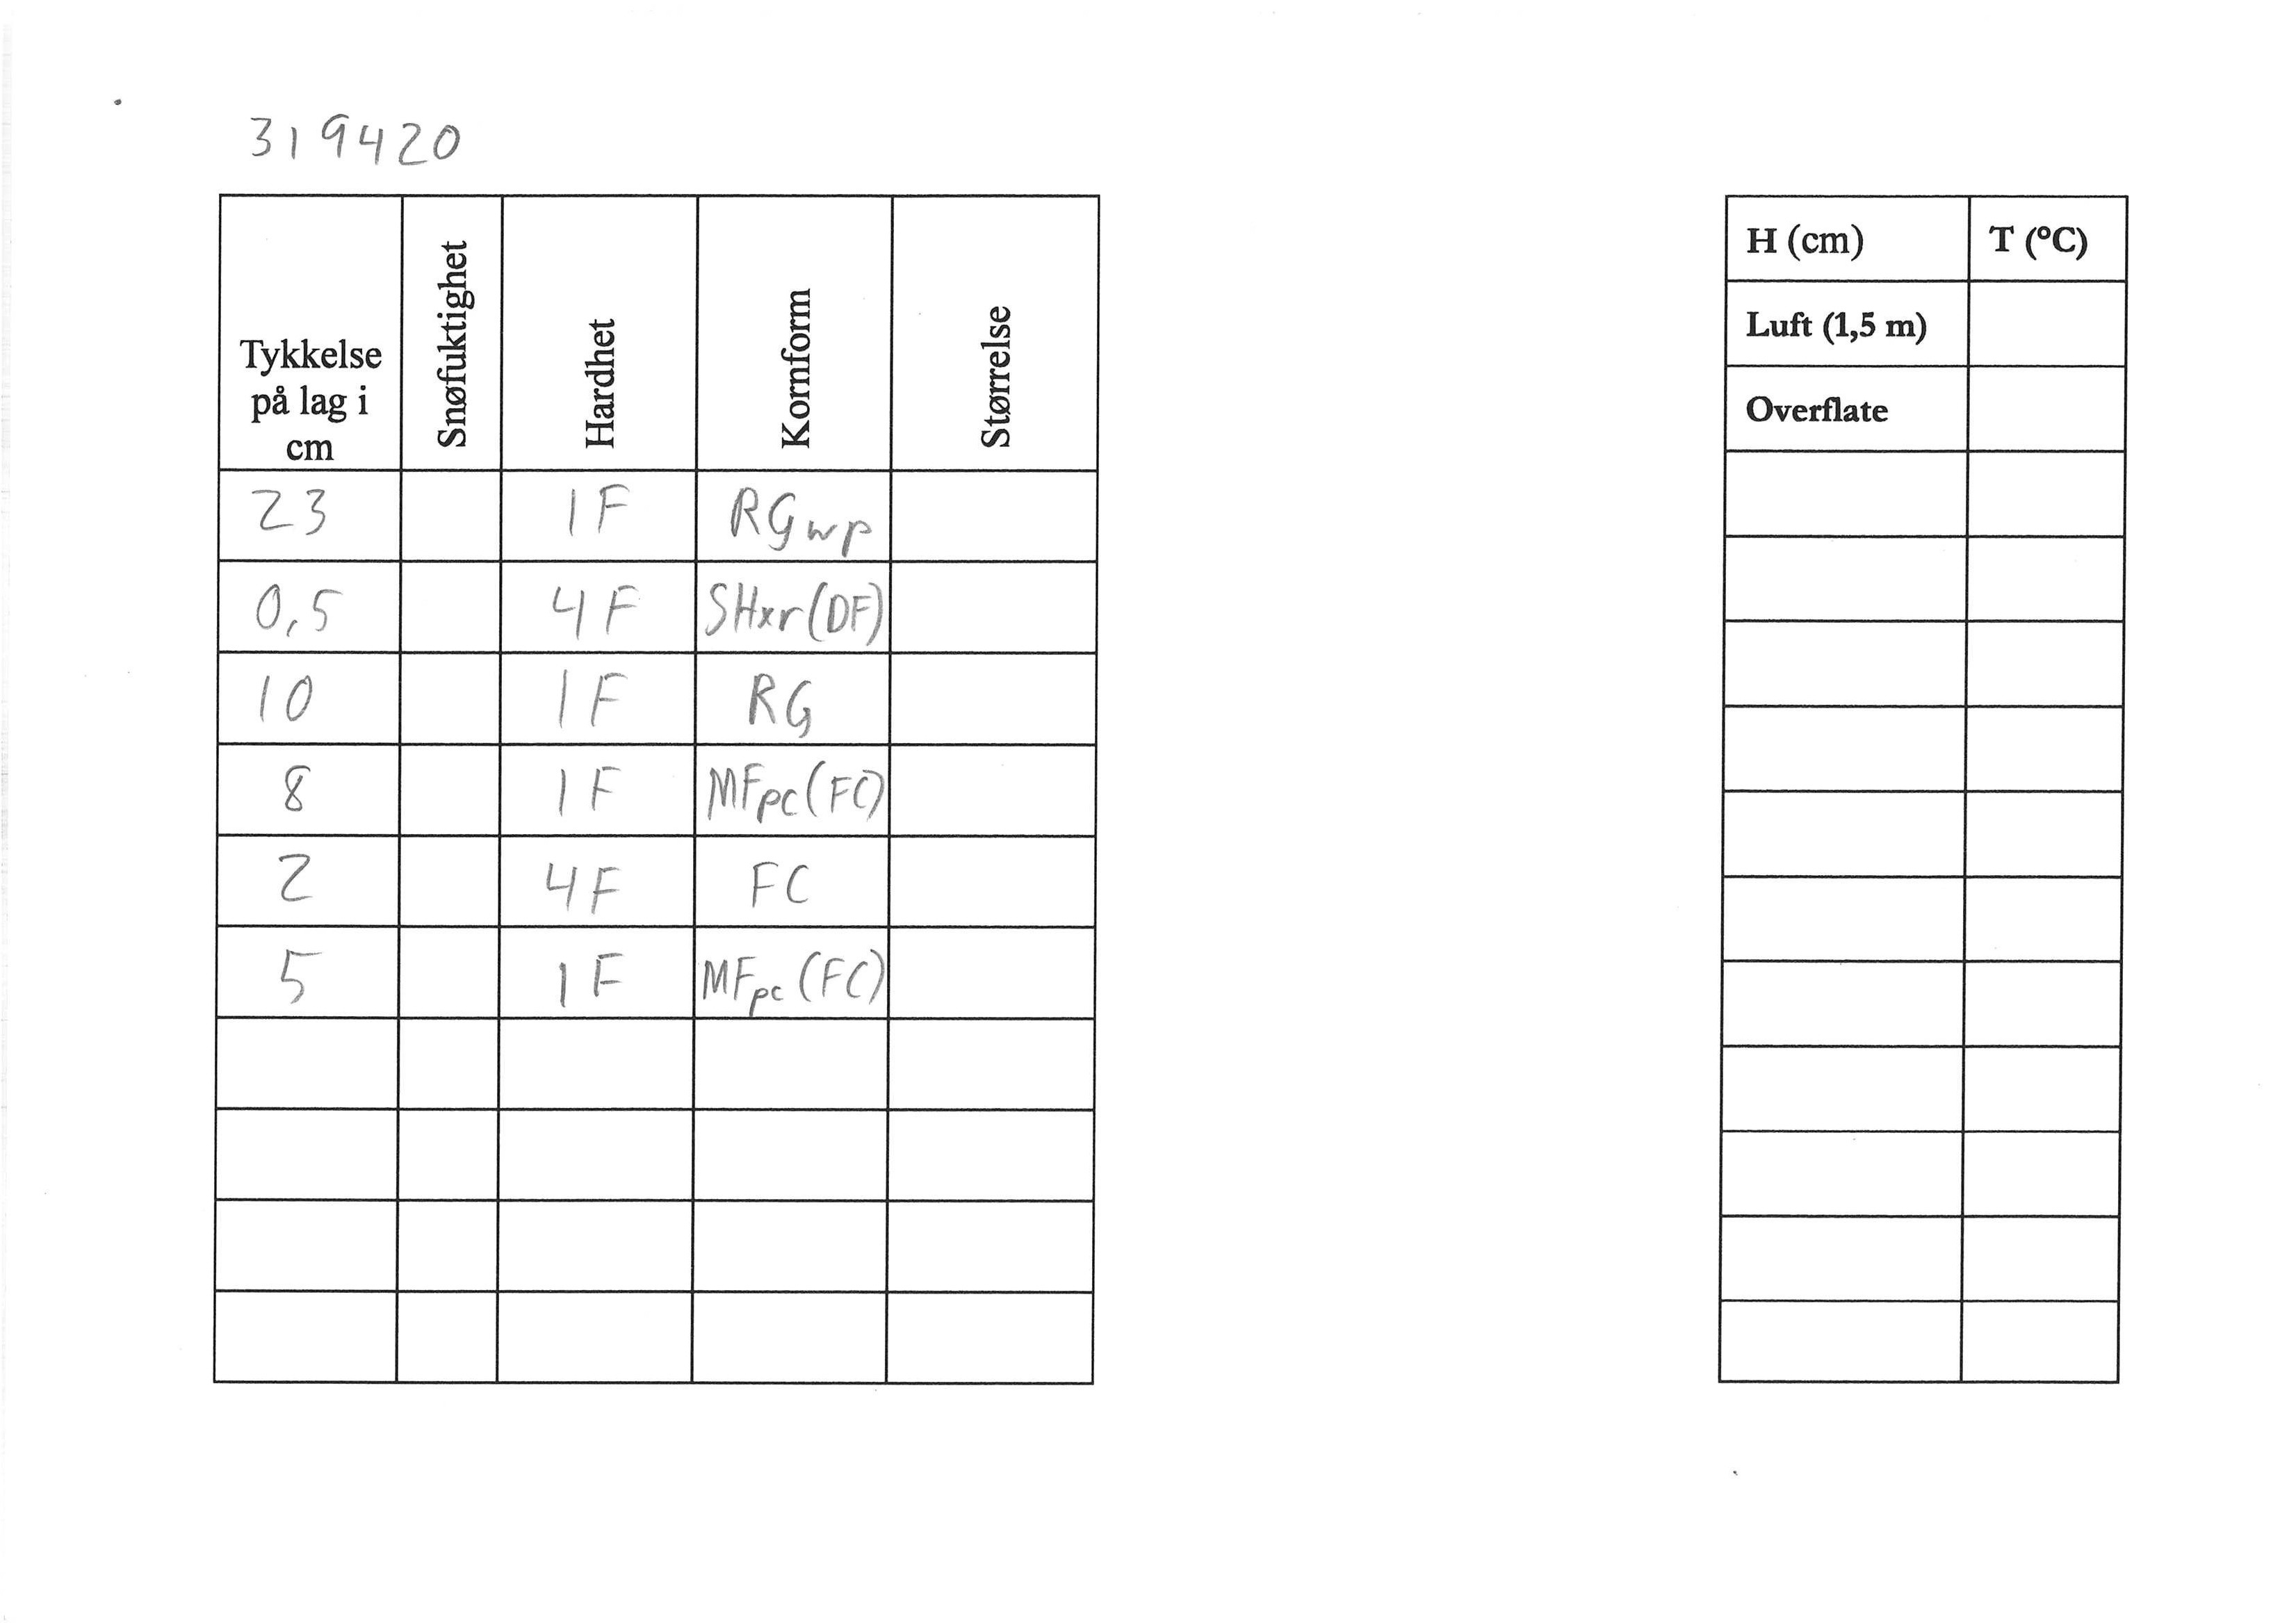 319420
Tykkelse på lag i cm Snøfuktighet Hardhet Kornform Størrelse
23 1F RGwp
0,5 4F SHxr(DF)
10 1F RG
8 1F MFpc(FC)
2 4F FC
5 1F MFpc(FC)
H (cm) T (°C)
Luft (1,5 m)
Overflate